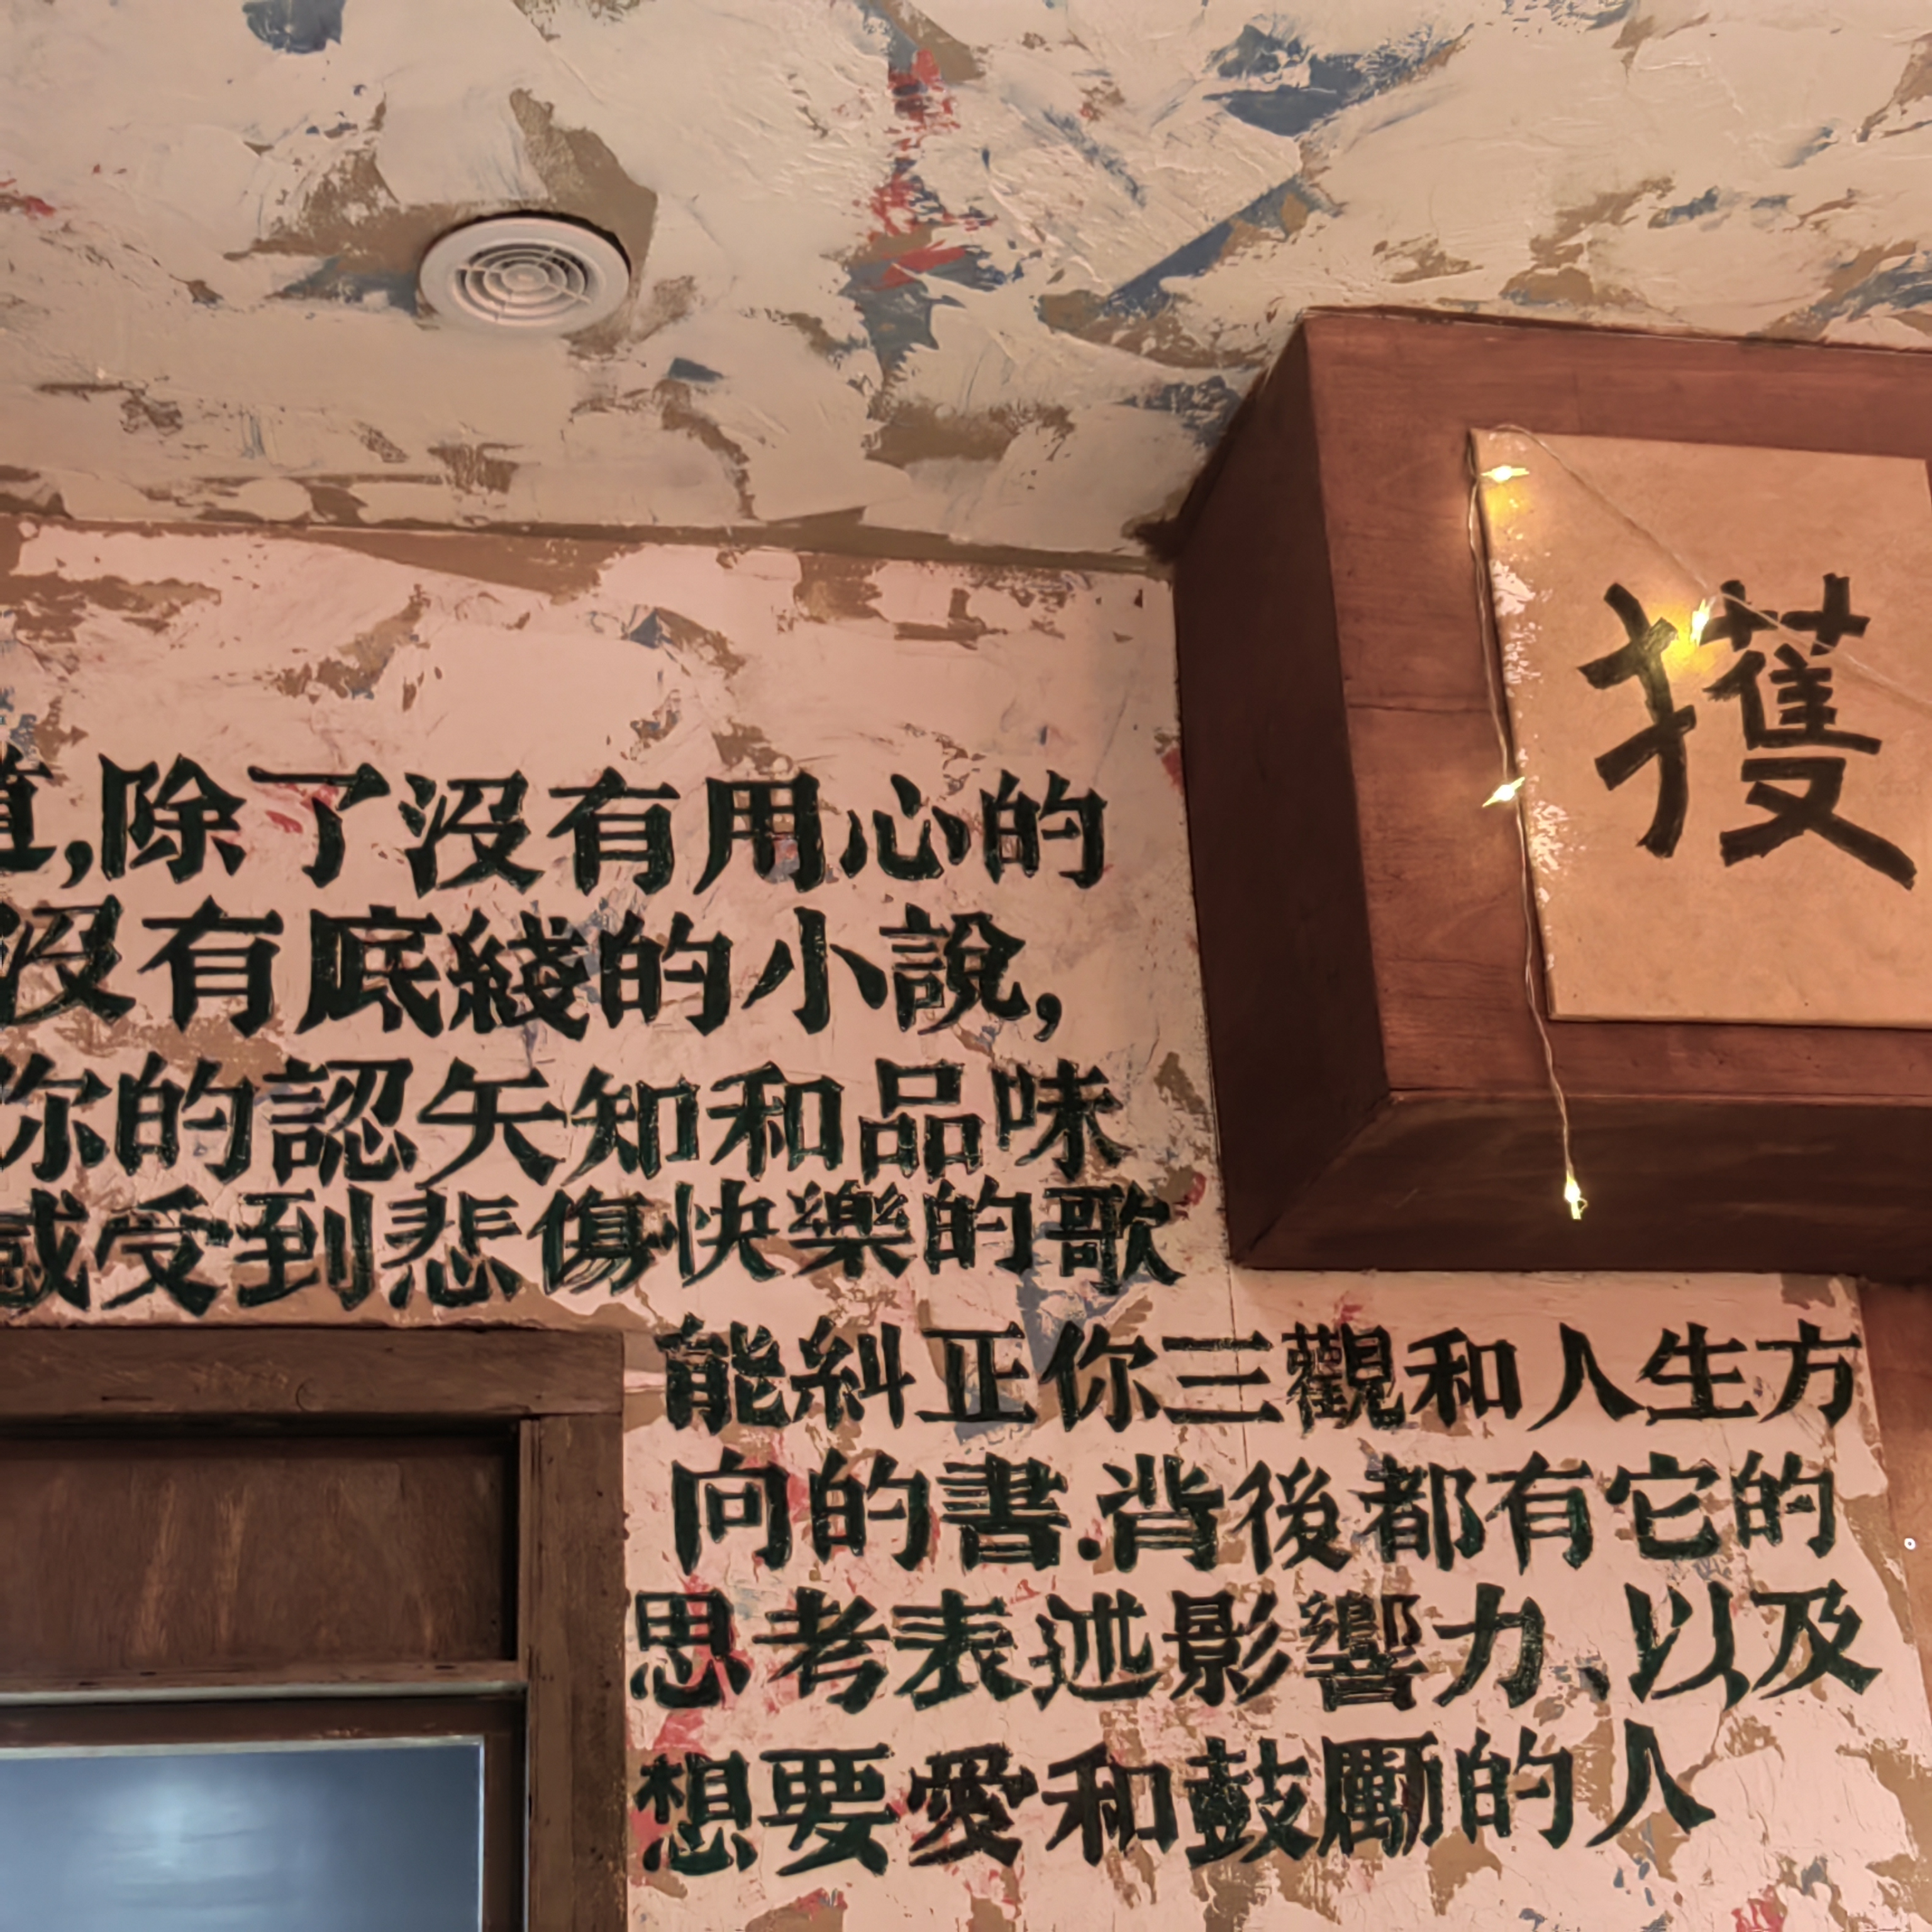 道,除了沒有用心的
沒有底綫的小說,
你的認矢知和品味
感受到悲傷快樂的歌
能糾正你三觀和人生方
向的書.背後都有它的
思考表述影響力、以及
想要愛和鼓勵的人
擭